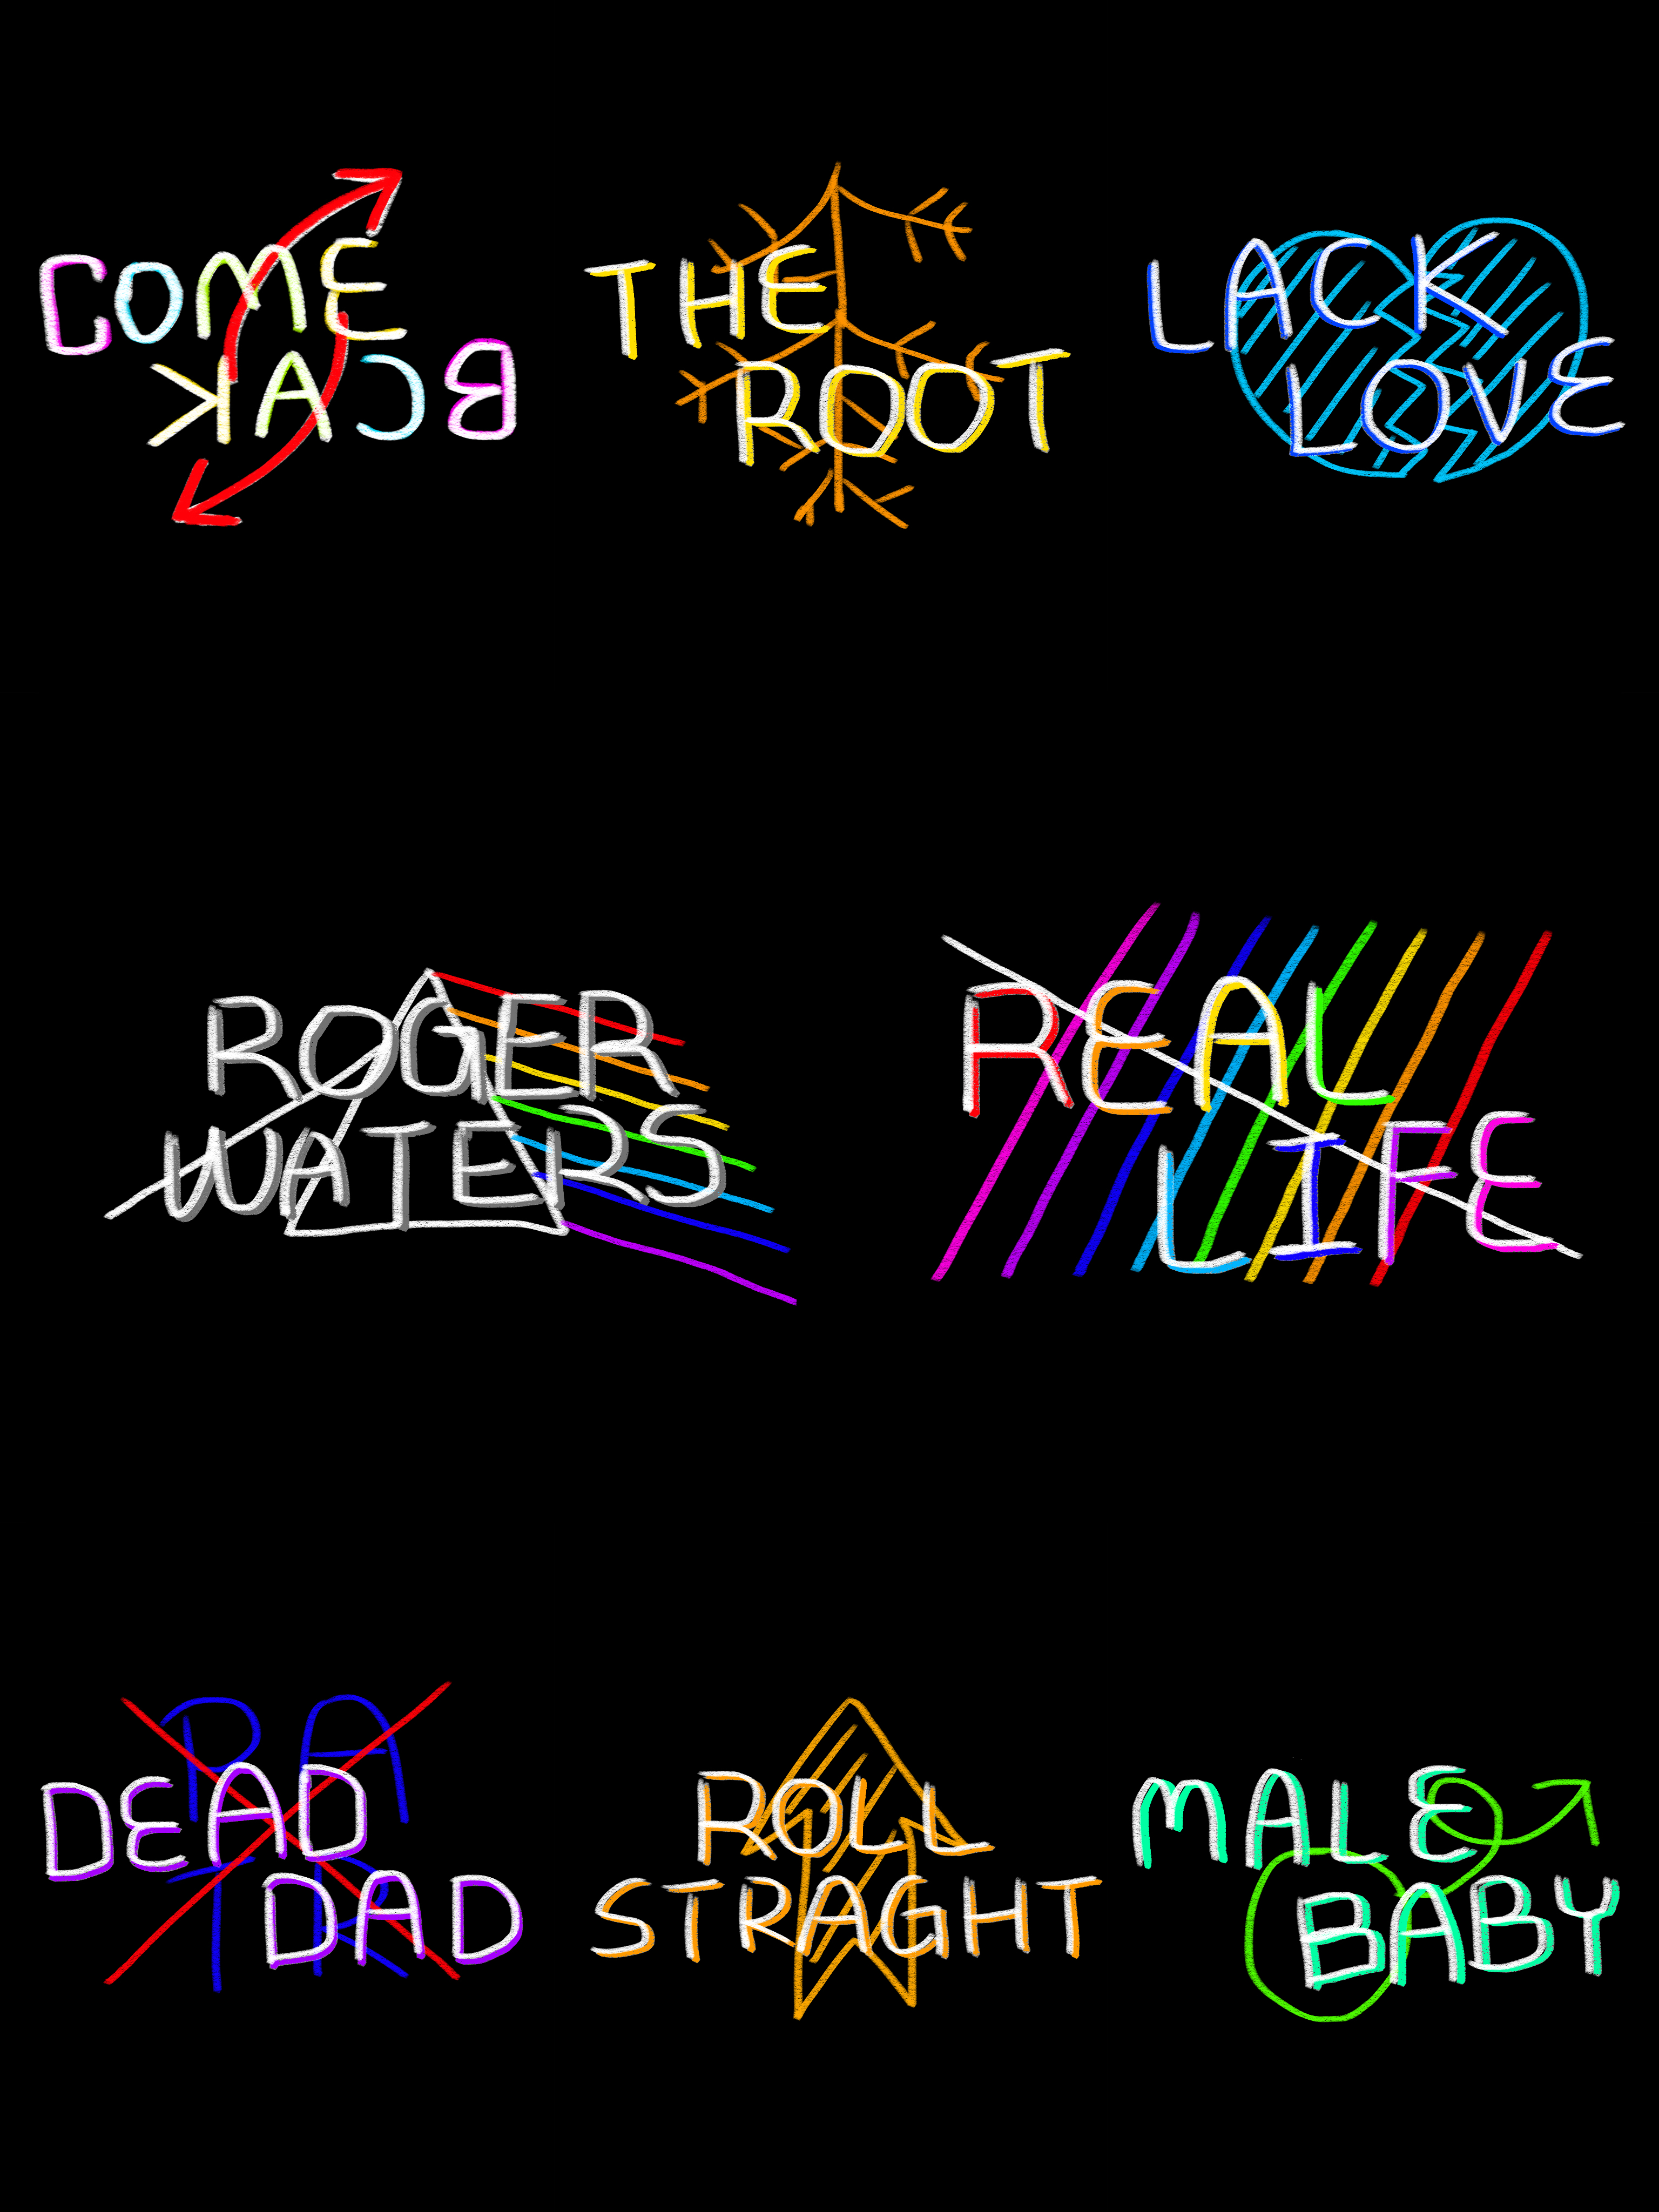 COME
BACK
THE
ROOT
LACK
LOVE
ROGER
WATERS
REAL
LIFE
PA
TR
DEAD
DAD
ROLL
STRAGHT
MALE
BABY